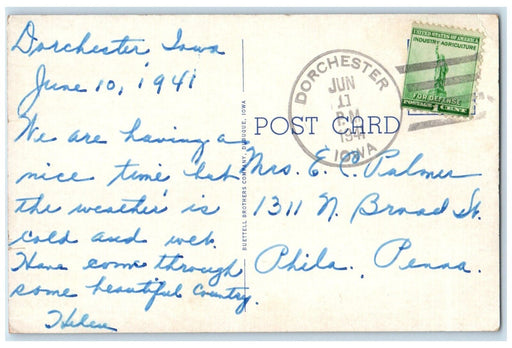 Dorchester, Iowa
June 10, 1941
We are having a
nice time but
the weather is
cold and wet.
Have come through
some beautiful Country.
Helen
BUETTELL BROTHERS COMPANY, DUBUQUE, IOWA
POST CARD
DORCHESTER
JUN
11
P.M
1941
IOWA
UNITED STATES OF AMERICA
INDUSTRY AGRICULTURE
FOR DEFENSE
POSTAGE 1 CENT
Mrs. E. C. Palmer
1311 N. Broad St.
Phila. Penna.